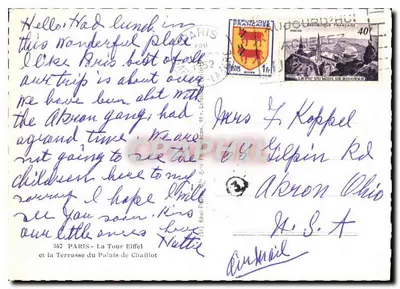 Hello. Had lunch in
this wonderful place
I like Paris best of all
our trip is about over
We have been alot with
the Akron gang, had
a grand time. We are
not going to see the
children here to my
sorrow. I hope I will
see you soon. Kiss
our little ones love
Hattie
347 PARIS - La Tour Eiffel
et la Terrasse du Palais de Chaillot
PARIS
1952
REPUBLIQUE FRANÇAISE
1F
POSTES
40F
Mrs F. Koppel
Gilpin Rd
Akron Ohio
U.S.A
Air Mail